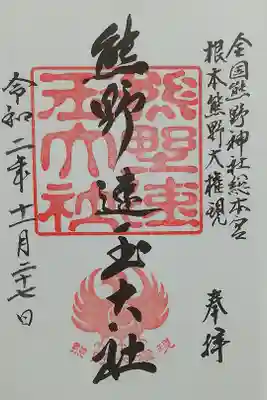 全国熊野神社総本宮
根本熊野大権現
奉拝
熊野速玉大社
熊野速
玉大社
令和二年十一月二十七日